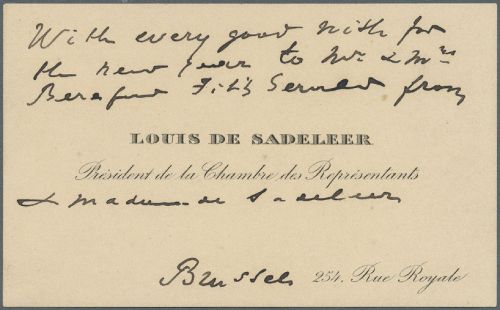 With every good wish for
the new year to Mr & Mrs
Gerald from
LOUIS DE SADELEER
Président de la Chambre des Représentants
& Madame de Sadeleer
Brussels 254. Rue Royale